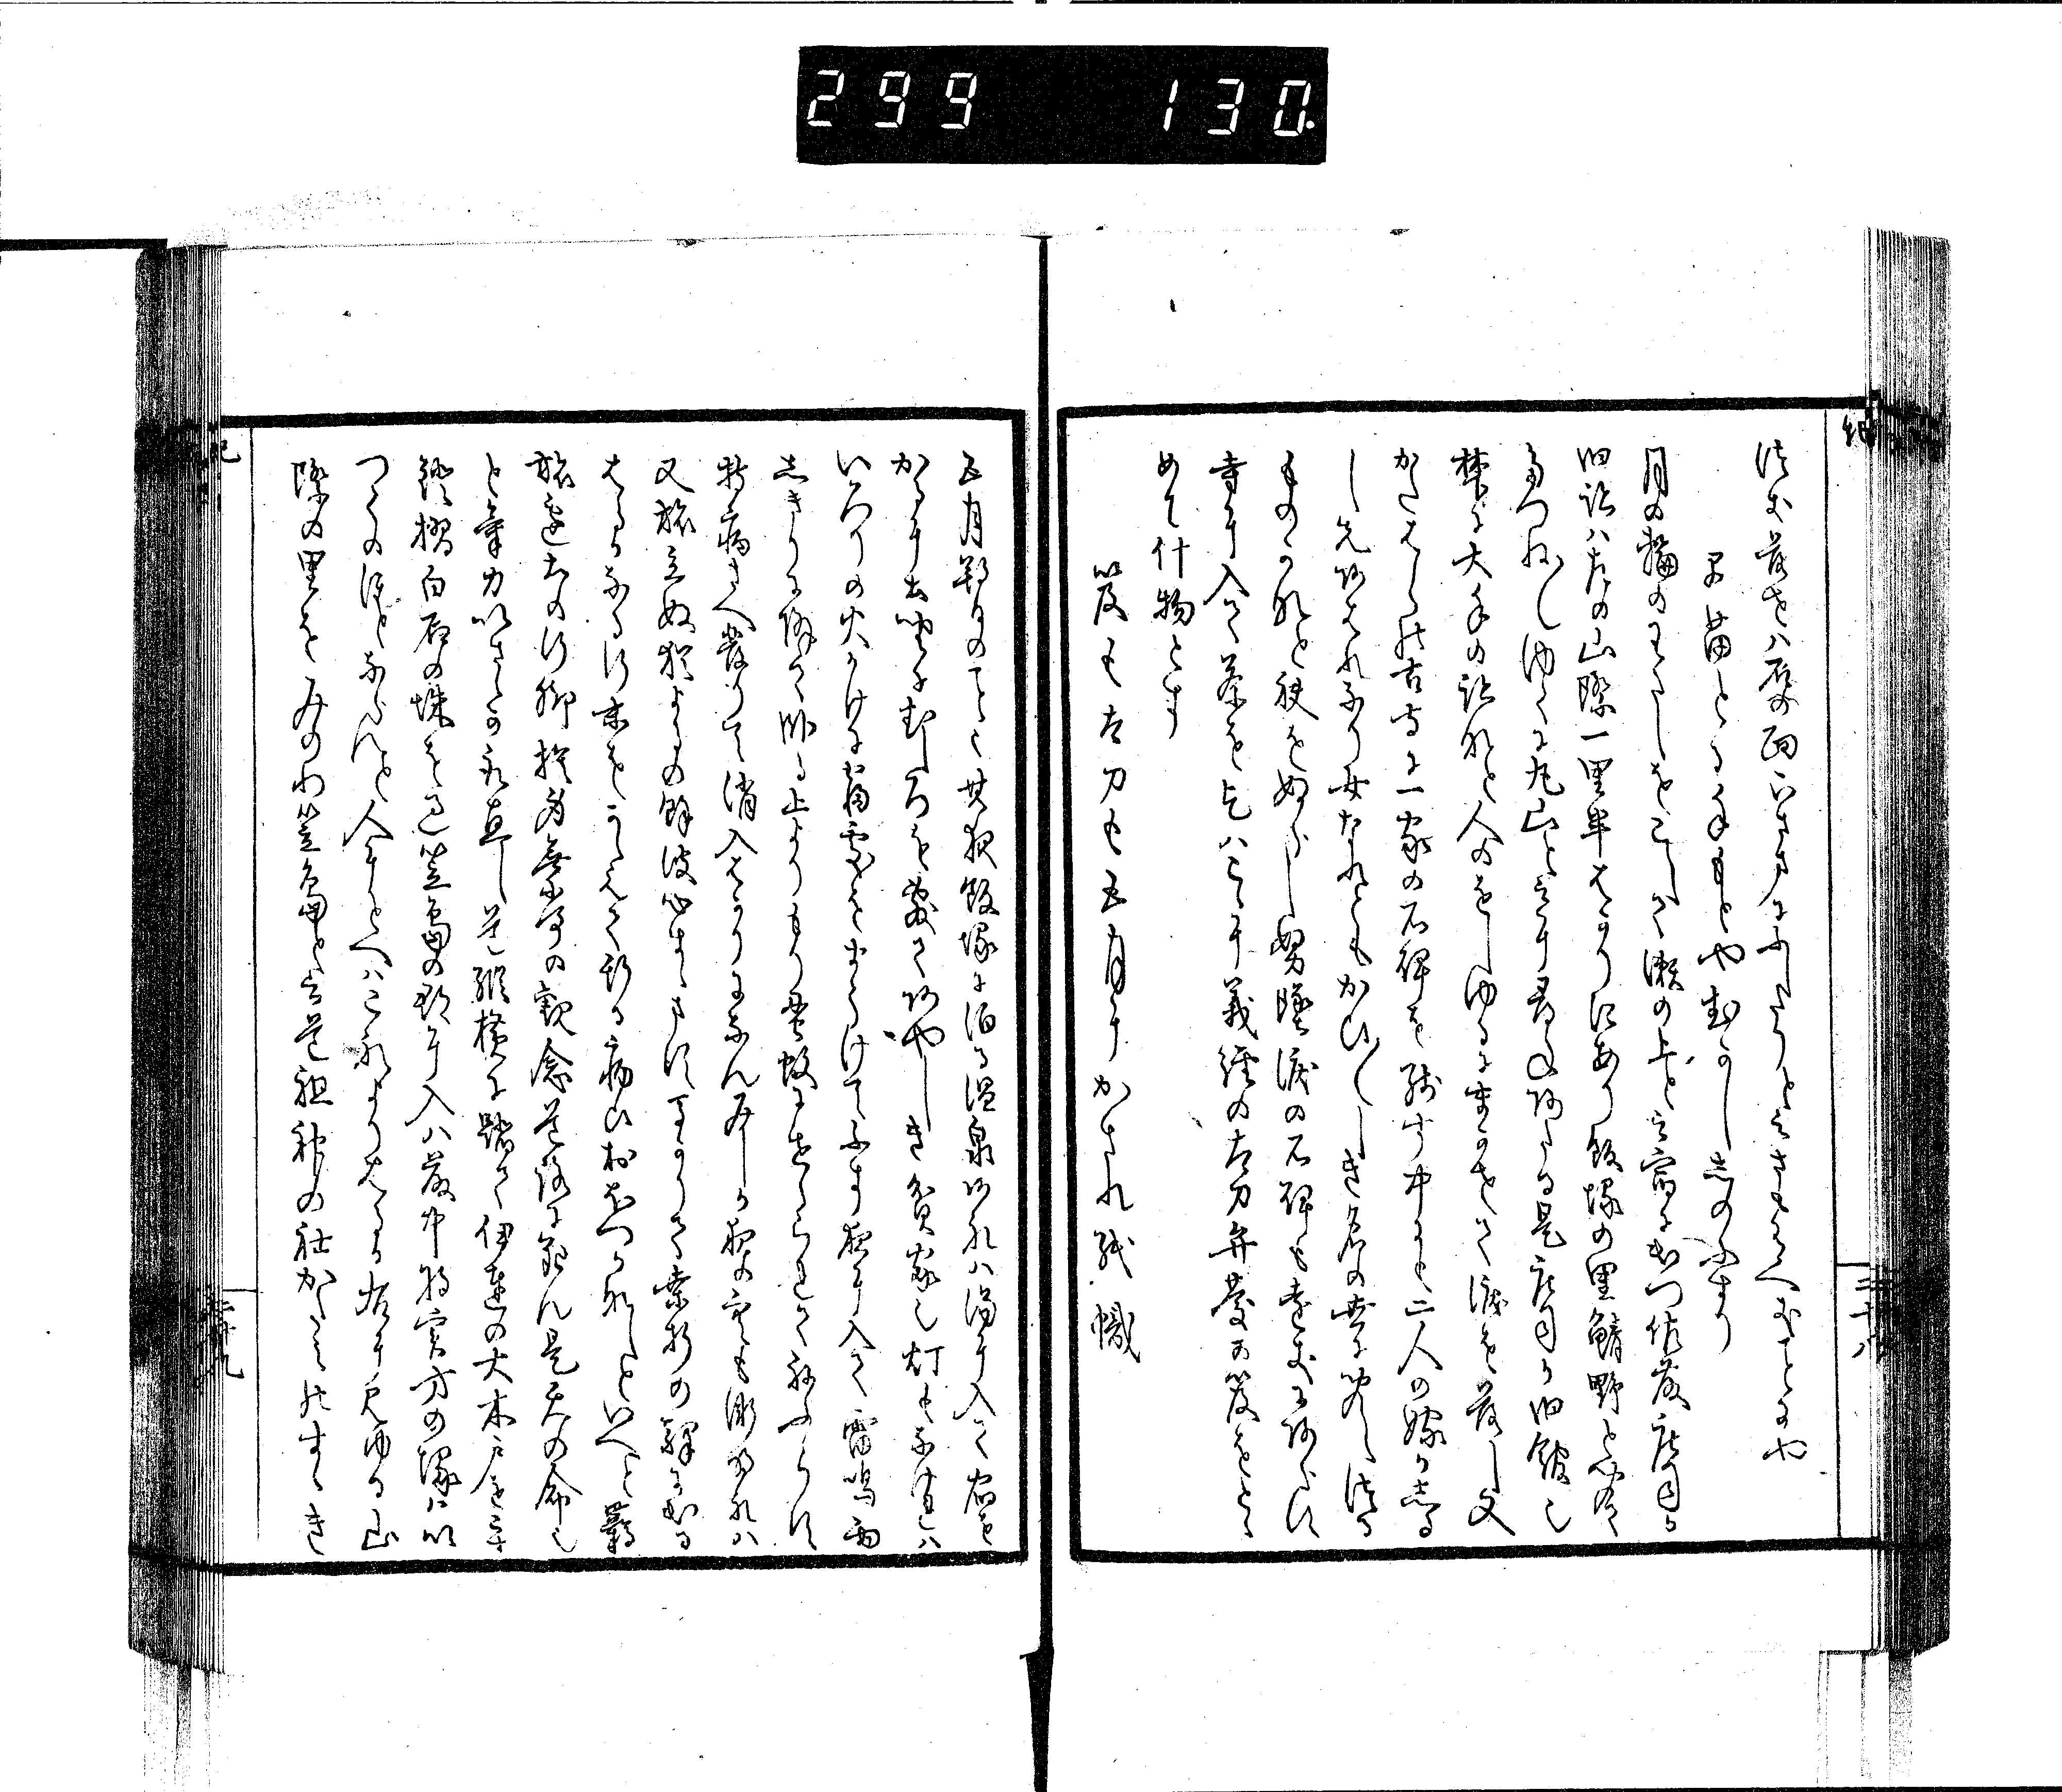 299 130.
谷に落せハ石の面下さまにふしたりと云さもあるへきことにや
早苗とる手もとや昔しのふすり
月の輪のわたしをこして瀬の上と云宿に出つ佐藤庄司か
旧跡ハ左の山際一里半はかりにあり飯塚の里鯖野と聞て
尋つね〳〵ゆくに丸山と云に尋あたる是庄司か旧館也
梺に大手の跡なと人のをしゆるにまかせて涙を落し又
かたはらの古寺に一家の石碑を残す中にも二人の嫁かしる
し先あはれなり女なれともかひ〳〵しき名の世に聞えつる
ものかなと袂をぬらし努墮涙の石碑も遠きにあらす
寺に入て茶を乞ハこゝに義経の太刀弁慶か笈をとゝ
めて什物とす
笈も太刀も五月にかされ紙幟
五月朔日のこと也其夜飯塚に泊る温泉あれハ湯に入て宿を
かるに土坐にむしろを敷てあやしき貧家也灯もなけれハ
いろりの火かけに寐所をまうけてふす夜に入て雷鳴雨
しきりに降て臥る上よりもり蚤蚊にせゝられてねふらす
持病さへ發りて消入はかりになん夜の空も漸明れハ
又旅立ぬ猶よるの餘波心すゝます馬かりて桑折の駅に出る
はるかなる行末をかゝえて斯る病ひおほつかなしといへと羇
旅邊土の行脚捨身無常の観念道路に死ん是天の命也
と氣力いさゝか取直し道縦横に踏て伊達の大木戸をこす
鐙摺白石の城を過笠島の郡に入ハ藤中将実方の塚ハい
つくのほとならんと人にとへハこれよりはるか右に見ゆる山
際の里をみのわ笠島と云道祖神の社かたみのすゝき